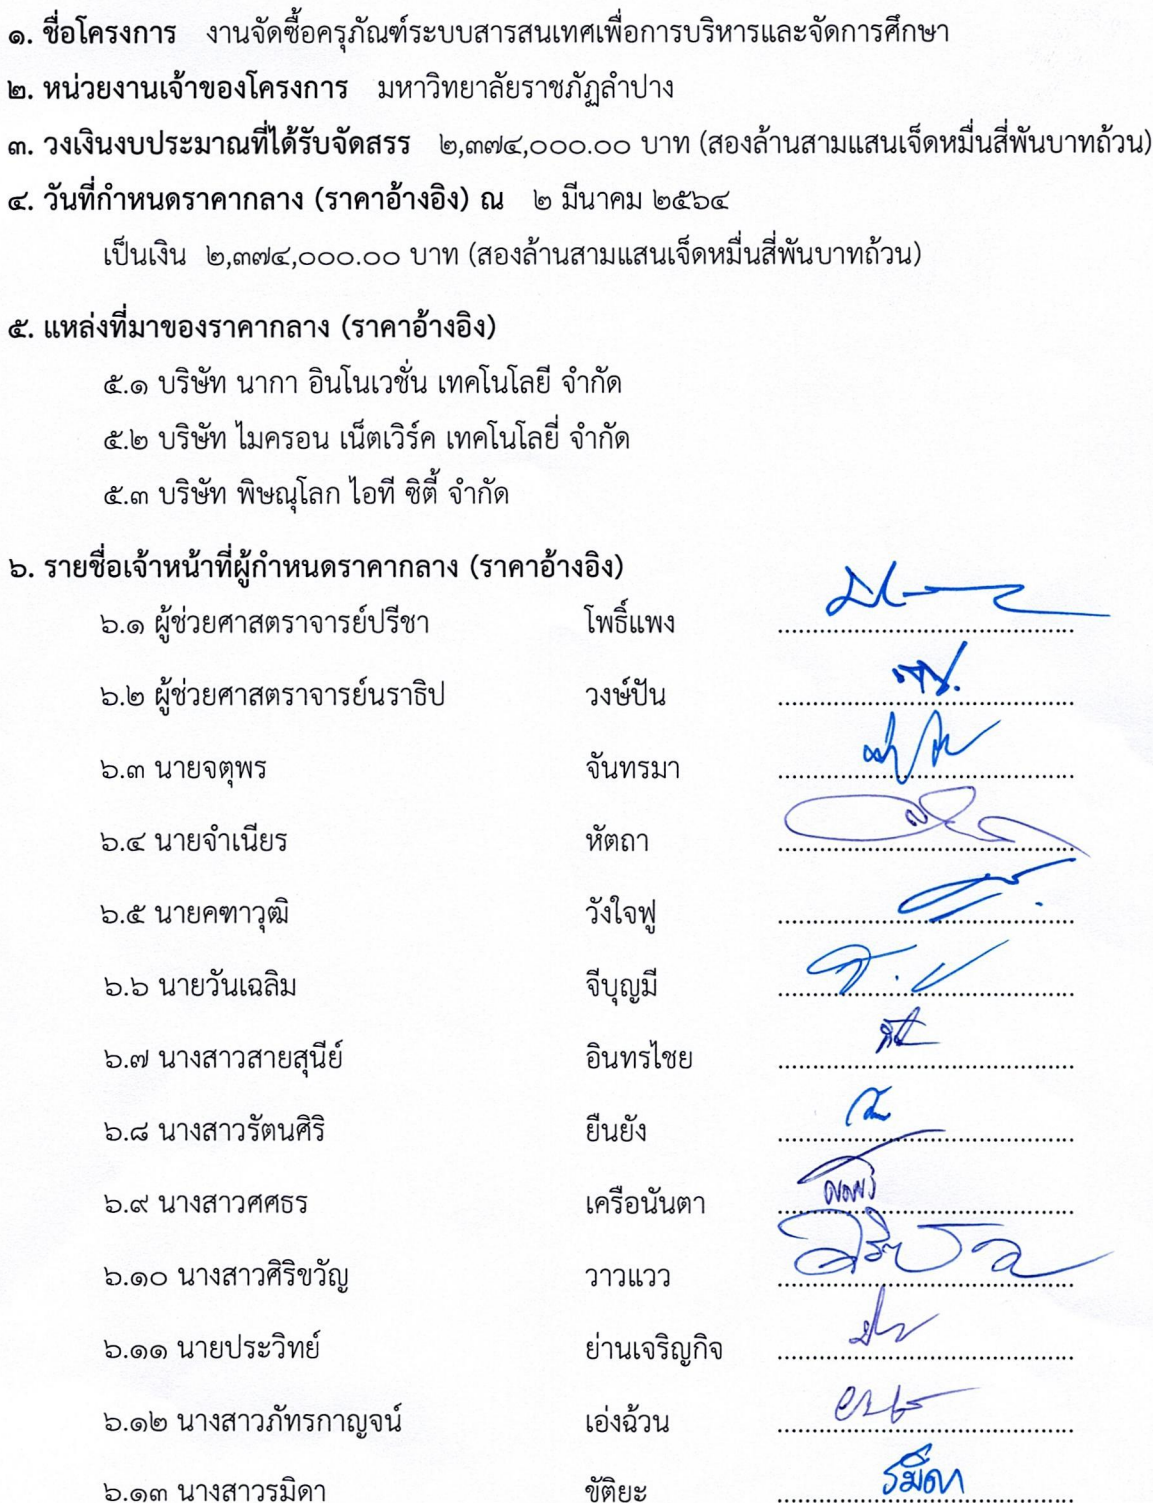 ๑. ชื่อโครงการ งานจัดซื้อครุภัณฑ์ระบบสารสนเทศเพื่อการบริหารและจัดการศึกษา
๒. หน่วยงานเจ้าของโครงการ มหาวิทยาลัยราชภัฏลำปาง
๓. วงเงินงบประมาณที่ได้รับจัดสรร ๒,๓๗๔,๐๐๐.๐๐ บาท (สองล้านสามแสนเจ็ดหมื่นสี่พันบาทถ้วน)
๔. วันที่กำหนดราคากลาง (ราคาอ้างอิง) ณ ๒ มีนาคม ๒๕๖๔
เป็นเงิน ๒,๓๗๔,๐๐๐.๐๐ บาท (สองล้านสามแสนเจ็ดหมื่นสี่พันบาทถ้วน)
๕. แหล่งที่มาของราคากลาง (ราคาอ้างอิง)
๕.๑ บริษัท นากา อินโนเวชั่น เทคโนโลยี จำกัด
๕.๒ บริษัท ไมครอน เน็ตเวิร์ค เทคโนโลยี่ จำกัด
๕.๓ บริษัท พิษณุโลก ไอที ซิตี้ จำกัด
๖. รายชื่อเจ้าหน้าที่ผู้กำหนดราคากลาง (ราคาอ้างอิง)
๖.๑ ผู้ช่วยศาสตราจารย์ปรีชา โพธิ์แพง
๖.๒ ผู้ช่วยศาสตราจารย์นราธิป วงษ์ปัน
๖.๓ นายจตุพร จันทรมา
๖.๔ นายจำเนียร หัตถา
๖.๕ นายคฑาวุฒิ วังใจฟู
๖.๖ นายวันเฉลิม จีบุญมี
๖.๗ นางสาวสายสุนีย์ อินทรไชย
๖.๘ นางสาวรัตนศิริ ยืนยัง
๖.๙ นางสาวศศธร เครือนันตา
๖.๑๐ นางสาวศิริขวัญ วาวแวว
๖.๑๑ นายประวิทย์ ย่านเจริญกิจ
๖.๑๒ นางสาวภัทรกาญจน์ เอ่งฉ้วน
๖.๑๓ นางสาวรมิดา ขัติยะ รมิดา